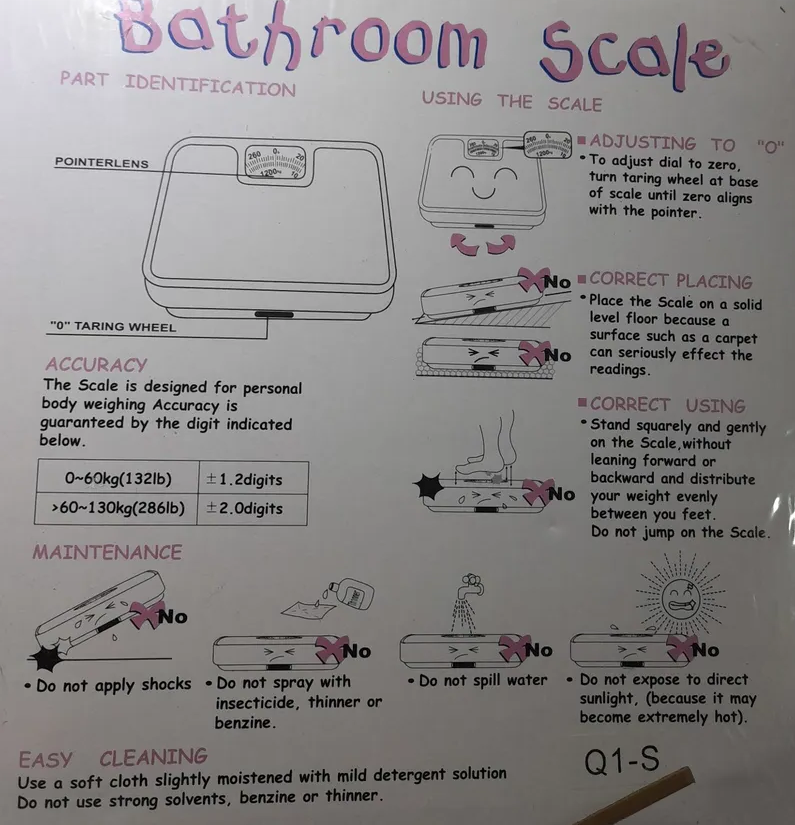 Bathroom Scale
PART IDENTIFICATION
POINTERLENS
260 0 20
120kg 10
"0" TARING WHEEL
ACCURACY
The Scale is designed for personal
body weighing Accuracy is
guaranteed by the digit indicated
below.
0~60kg(132lb) ±1.2digits
>60~130kg(286lb) ±2.0digits
USING THE SCALE
260 0 20
120kg 10
■ ADJUSTING TO "O"
• To adjust dial to zero,
turn taring wheel at base
of scale until zero aligns
with the pointer.
No
No
■ CORRECT PLACING
• Place the Scale on a solid
level floor because a
surface such as a carpet
can seriously effect the
readings.
No
■ CORRECT USING
• Stand squarely and gently
on the Scale,without
leaning forward or
backward and distribute
your weight evenly
between you feet.
Do not jump on the Scale.
MAINTENANCE
No
• Do not apply shocks
No
• Do not spray with
insecticide, thinner or
benzine.
No
• Do not spill water
No
• Do not expose to direct
sunlight, (because it may
become extremely hot).
EASY CLEANING
Use a soft cloth slightly moistened with mild detergent solution
Do not use strong solvents, benzine or thinner.
Q1-S